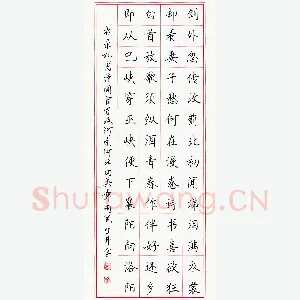 剑外忽传收蓟北初闻涕泪满衣裳
却看妻子愁何在漫卷诗书喜欲狂
白首放歌须纵酒青春作伴好还乡
即从巴峡穿巫峡便下襄阳向洛阳
杜甫诗闻官军收河南河北
Shufawang.CN